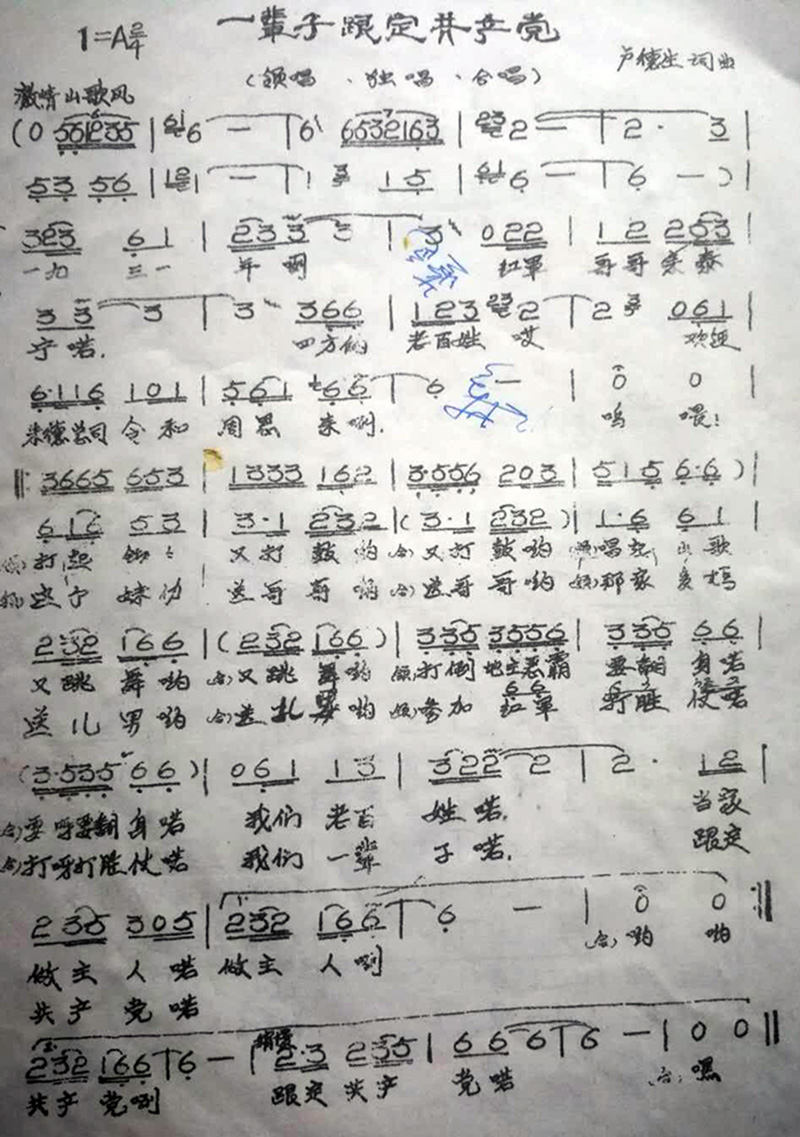 一辈子跟定共产党
1=A 2/4
(领唱、独唱、合唱)
卢德生 词曲
激情山歌风
(0 551235 | 6 — | 6 6532163 | 2 — | 2 · 3 |
53 56 | 1 — | 1 15 | 6 — | 6 — ) |
323 61 | 233 3 | 3 022 | 12 253 |
一九 三一 年啊 红军 哥哥来泰
33 3 | 3 366 | 123 2 | 2 061 |
宁喏. 四方的 老百姓 哎 欢迎
6·116 101 | 561 66 | 6 — | 0 0 |
朱德总司令和 周恩来啊. 呜 喂!
‖: 3665 653 | 1333 162 | 3·556 203 | 515 6·6 ) |
616 53 | 3·1 232 | (3·1 232) | 1·6 61 |
打起 又打鼓哟 (合)又打鼓哟 唱起山歌
送哥哥哟 (合)送哥哥哟 那家
232 166 | (232 166) | 335 3556 | 335 66 |
又跳舞哟 (合)又跳舞哟 (领)打倒地主恶霸 要翻身喏
送儿男哟 (合)送儿男哟 参加红军 打胜仗喏
(3·535 66) | 061 13 | 322 2 | 2 · 12 |
(合)要呀要翻身喏 我们老百姓喏. 当家
(合)打呀打胜仗喏 我们一辈子喏. 跟定
235 305 | 232 166 | 6 — | 0 0 :‖
做主人喏 做主人啊 (合)哟 哟
共产党喏
232 166 | 6 — | 2·3 235 | 66 6 | 6 — | 0 0 ‖
共产党啊 跟定共产党喏 (合)嘿